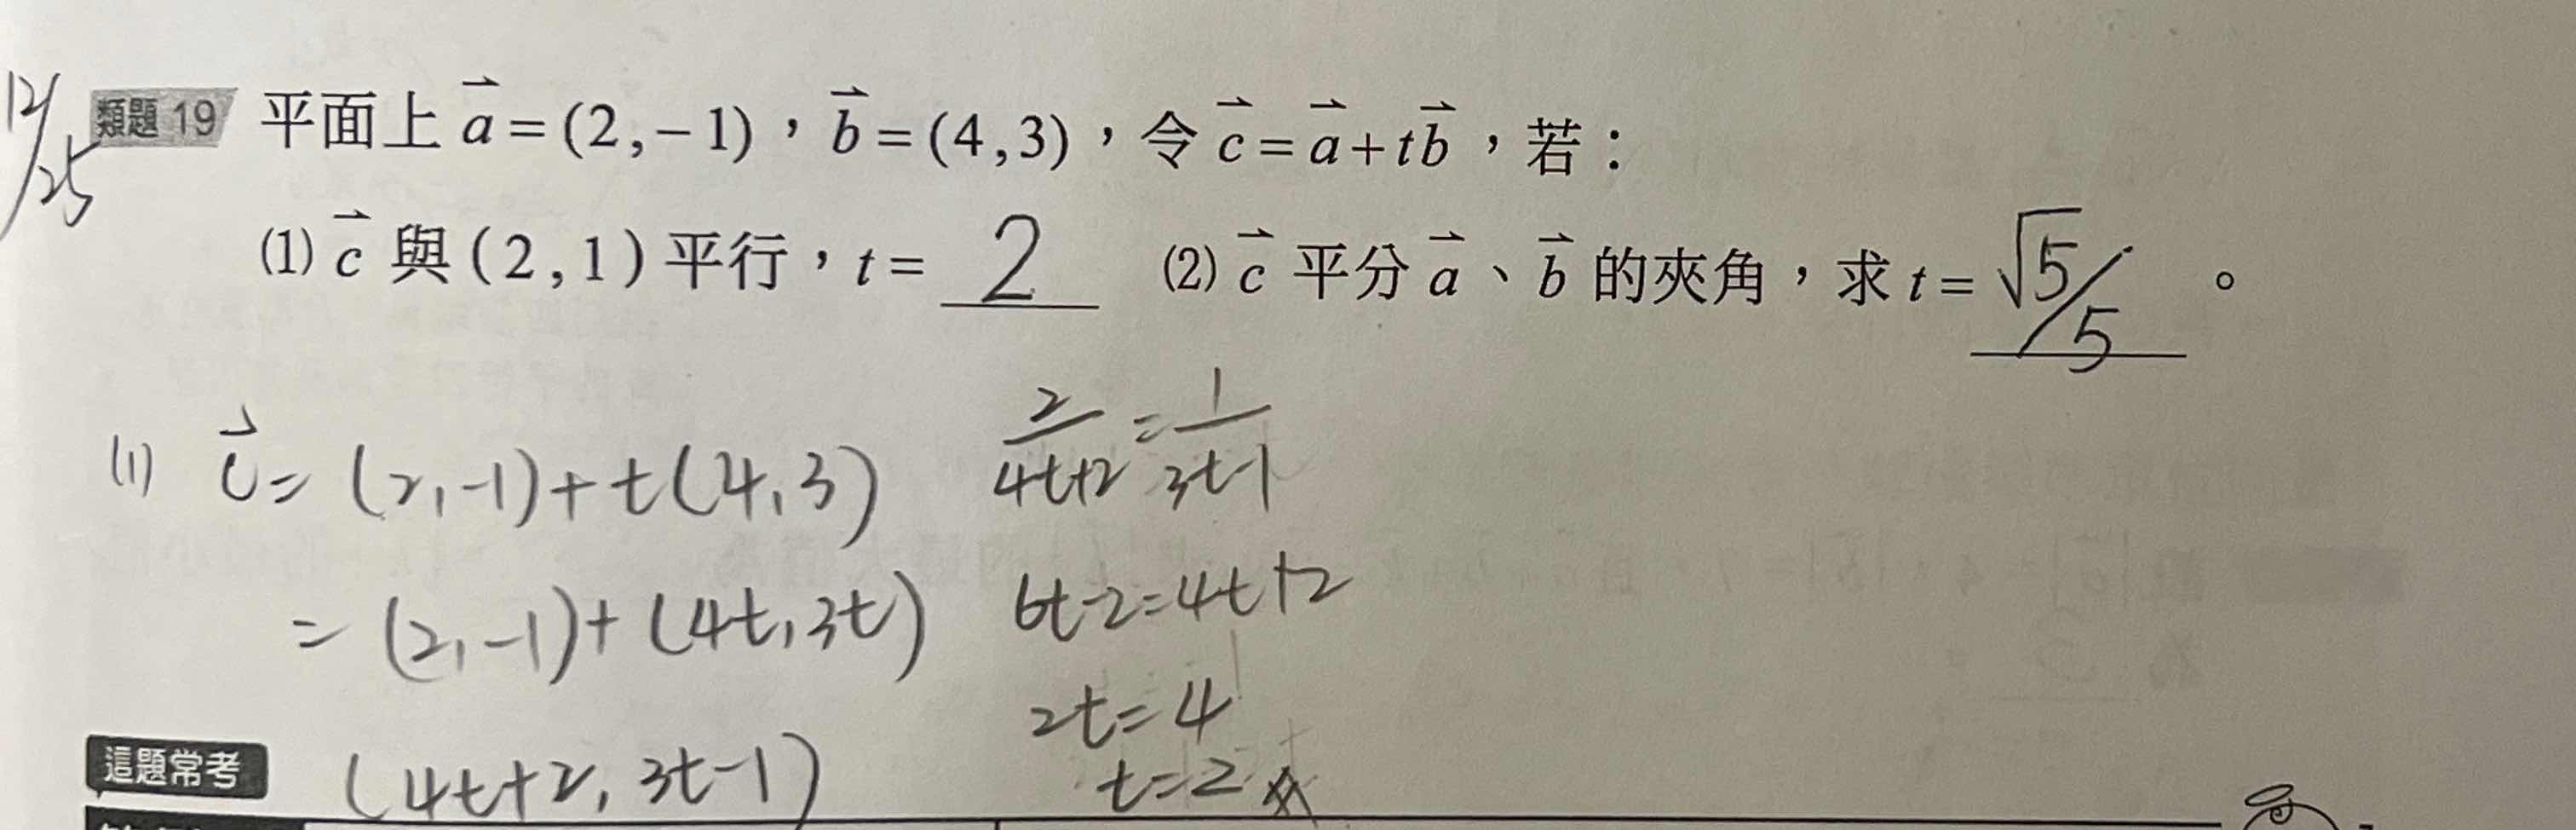 12/25
類題 19 平面上 a⃗ = (2, −1),b⃗ = (4, 3),令 c⃗ = a⃗ + tb⃗,若:
(1) c⃗ 與 (2, 1) 平行,t = 2 (2) c⃗ 平分 a⃗、b⃗ 的夾角,求 t = √5/5。
(1) c⃗ = (2, -1) + t(4, 3)
= (2, -1) + (4t, 3t)
(4t+2, 3t-1)
2/4t+2 = 1/3t-1
6t-2=4t+2
2t=4
t=2
這題常考